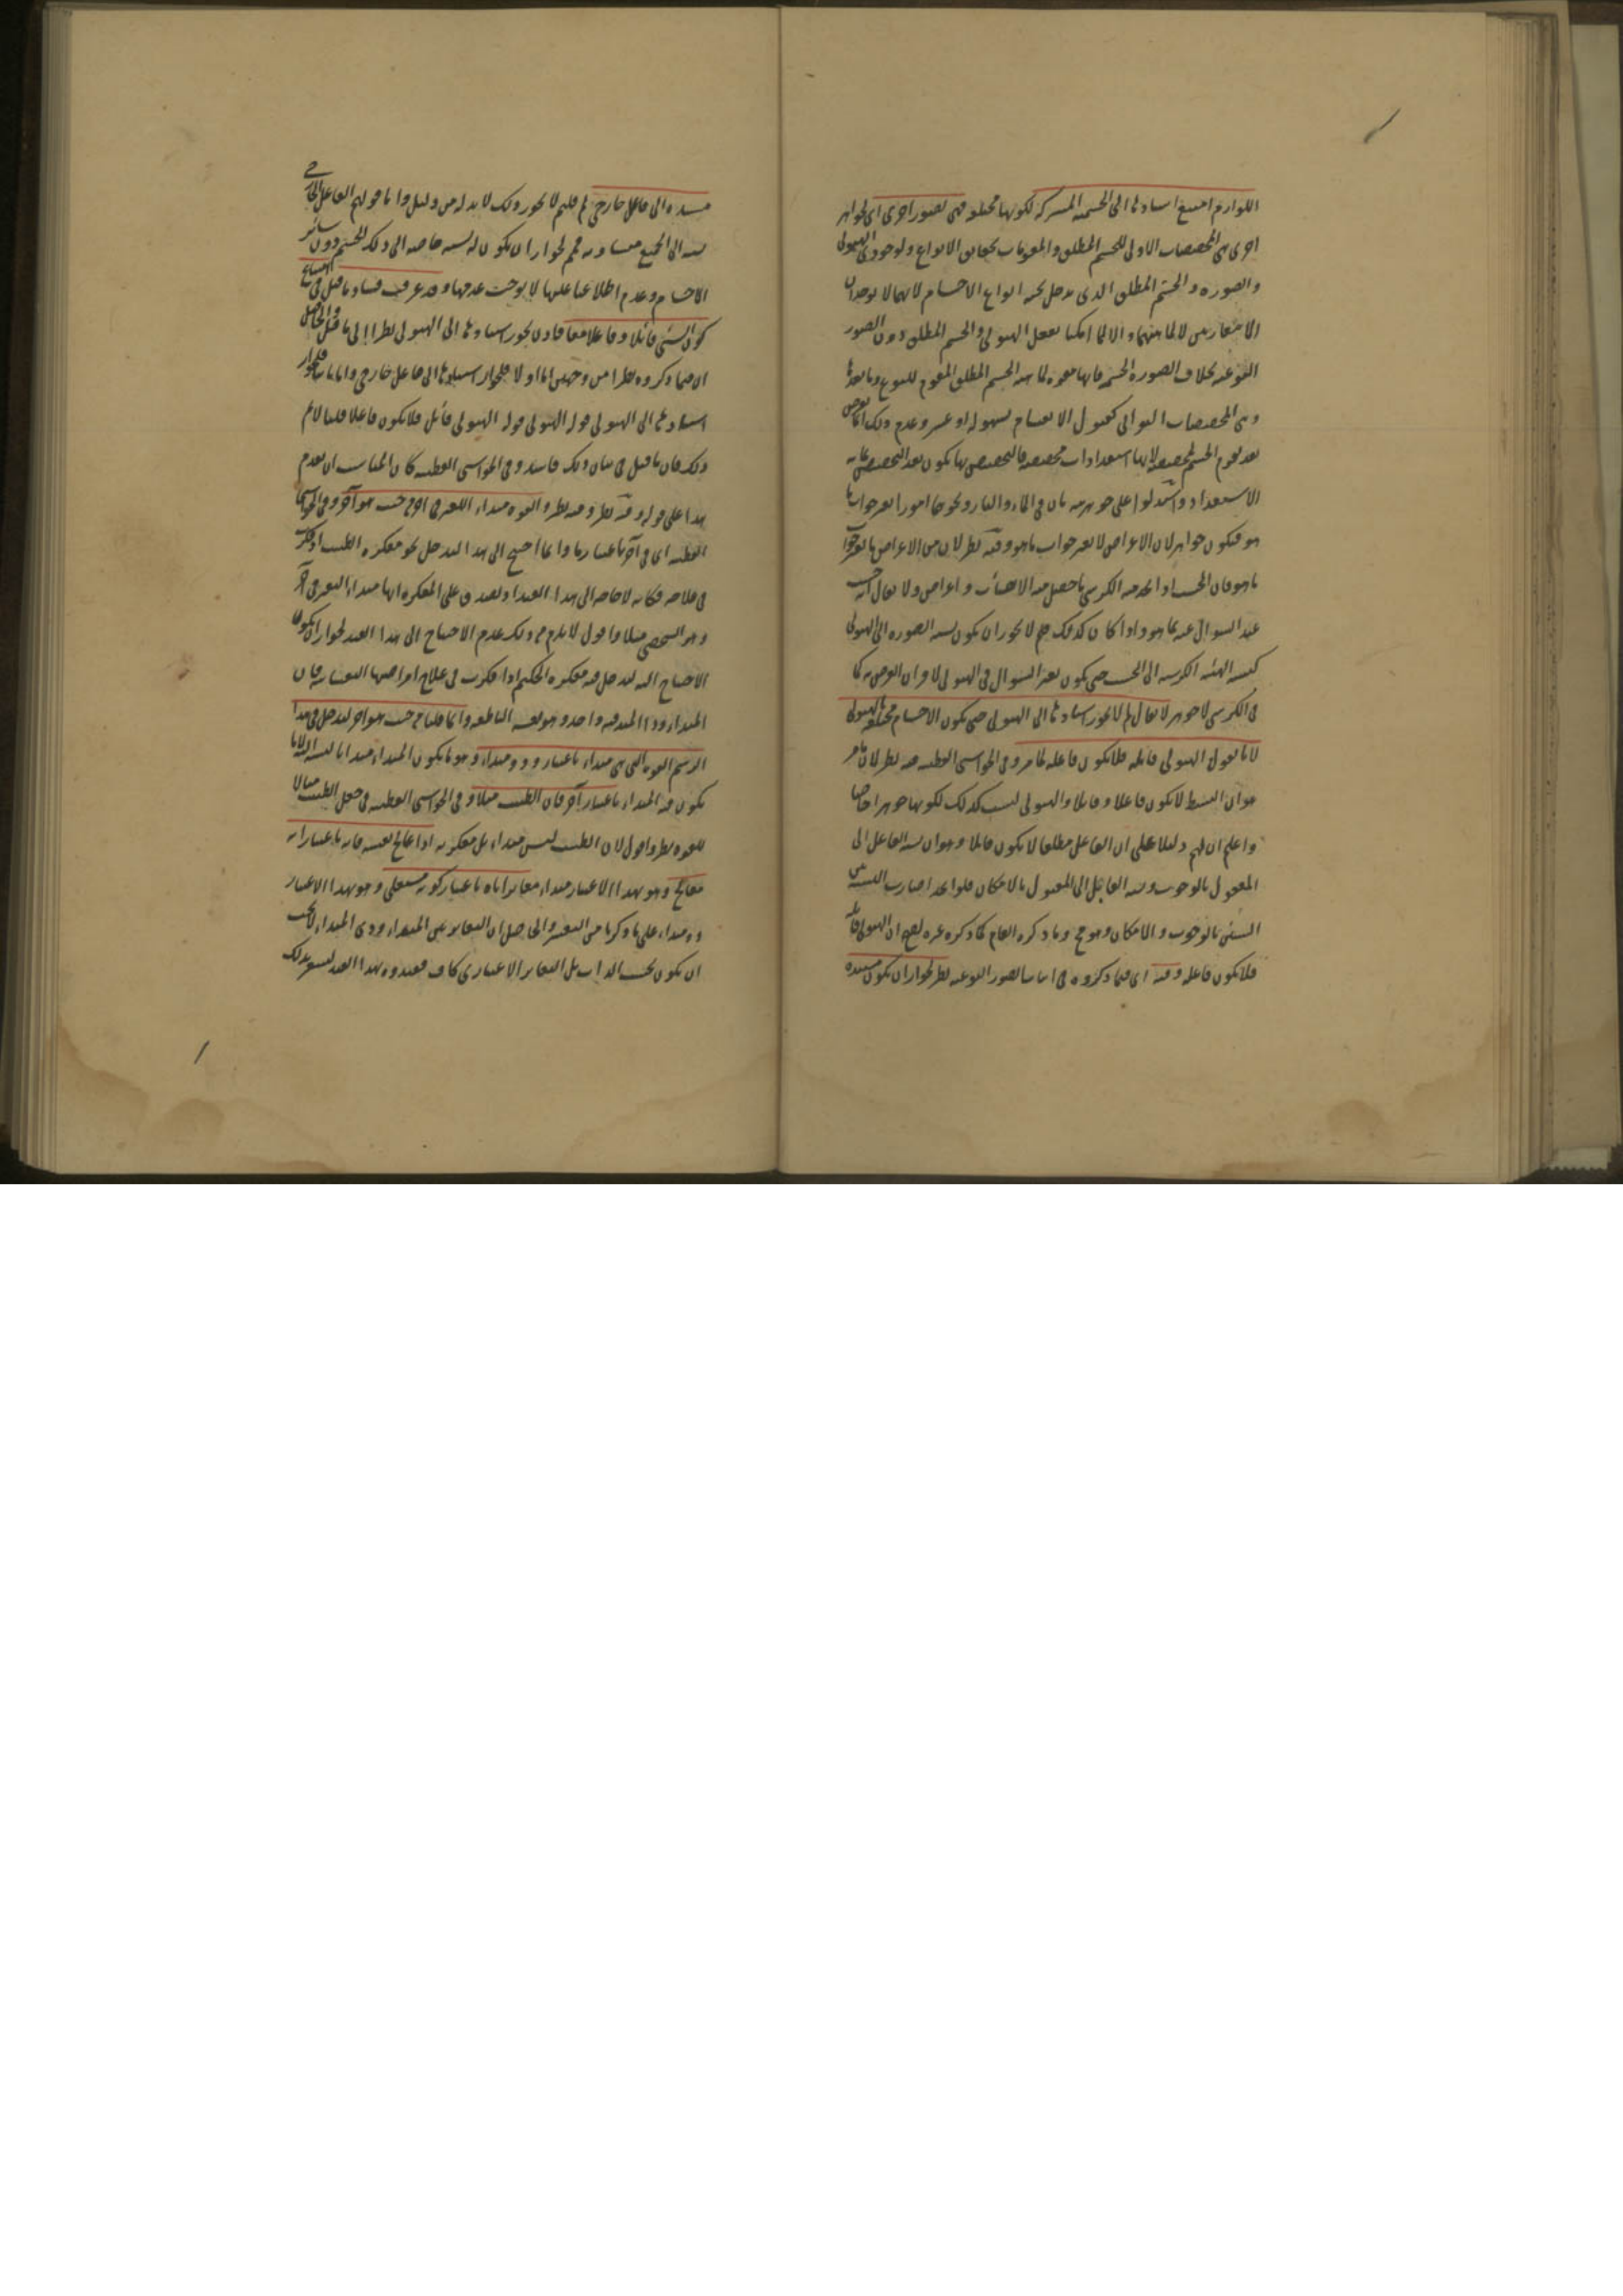 اللوازم امتنع اسنادها الى الجسمية المشتركة لكونها مختلفة فهى لصور اخرى اى لجواهر
اخرى هى المخصصات الاولى للجسم المطلق والمقومات لحقايق الانواع ولوجودى الهيولى
والصورة والجسم المطلق الذى يدخل تحته انواع الاجسام لانهما لا يوجدان
الا متقارنين لا لماهيتهما والا لما امكننا تعقل الهيولى والجسم المطلق دون الصور
النوعية بخلاف الصورة الجسمية فانها مقومة لماهية الجسم المطلق المقوم للنوع وما بعدها
وهى المخصصات الثوانى كقبول الانقسام بسهولة او عسر وعدم ذلك انما يعرض
بعد تقوم الجسم لانها استعدادات مخصصة فالتخصيص بها يكون بعد التخصيص
الاستعداد واستدلوا على جوهريته بان فى الماء والنار ونحوهما امورا تغير جواب ما
هو فيكون جواهر لان الاعراض لا تغير جواب ما هو وفيه نظر لان من الاعراض ما تغير جواب
ما هو فان الخشب اذا اتخذ منه الكرسى ما حصل فيه الا هيئات واعراض ولا يقال انه خشب
عند السؤال عنه بما هو واذا كان كذلك فلم لا يجوز ان يكون نسبة الصورة الى الهيولى
كنسبة الهيئة الكرسية الى الخشب حتى يكون تغير السؤال فى الهيولى لاقران العرض به كما
فى الكرسى لا جوهر لا يقال لم لا يجوز اسنادها الى الهيولى حتى يكون الاجسام مختلفة بالهيولى
لانا نقول الهيولى قابلة فلا يكون فاعلة لما مر وفى الحواشى القطبية فيه نظر لان ما مر
هو ان البسيط لا يكون فاعلا وقابلا والهيولى ليست كذلك لكونها جوهرا خاصا
واعلم ان لهم دليلا على ان الفاعل مطلقا لا يكون قابلا وهو ان نسبة الفاعل الى
المفعول بالوجوب ونسبة القابل الى المقبول بالامكان فلو اتحدا صارت النسبة بين
الشيئين بالوجوب والامكان وهو مح وما ذكره العام كما ذكره غيره لصح ان الهيولى قابلة
فلا يكون فاعلة وفيه اى فيما ذكروه فى اثبات الصور النوعية نظر لجواز ان يكون مستندة
مستندة الى فاعل خارجى لم قلتم لا يجوز ذلك لا بد له من دليل واما قولهم الفاعل الخارجى
نسبته الى الجميع متساوية فمم لجواز ان يكون له نسبة خاصة الى ذلك الجسم دون سائر
الاجسام وعدم اطلاعنا عليها لا يوجب عدمها وقد عرفت فساد ما قيل فى امتناع
كون الشىء قابلا وفاعلا معا فاذن يجوز اسنادها الى الهيولى نظرا الى ما قيل والحاصل
ان فيما ذكروه نظرا من وجهين اما اولا فلجواز اسنادها الى فاعل خارجى واما ثانيا فلجواز
اسنادها الى الهيولى قوله الهيولى قابل فلا يكون فاعلا قلنا لا نم
ذلك فان ما قيل فى بيان ذلك فاسد وفى الحواشى القطبية كان المناسب ان يقدم
هذا على قوله وفيه نظر وفيه نظر والقوة مبداء التغير فى اخر من حيث هو آخر وفى الحواشى
القطبية اى فى آخر باعتبار ما وانما احتيج الى هذا ليدخل نحو معالجة الطبيب اذ فكر
فى علاجه فكانه لا حاجة الى هذا القيد اذ يصدق على المفكرة انها مبداء التغير فى آخر
وهو الشخص مثلا واقول لا يلزم من ذلك عدم الاحتياج الى هذا القيد لجواز ان يكون
الاحتياج اليه ليدخل فيه مفكرة الحكيم اذا فكرت فى علاج امراضها النفسانية فان
المبداء وذا المبدا فيه واحد وهو نفسه الناطقة وانما قلنا من حيث هو آخر ليدخل فى هذا
الرسم القوة التى هى مبداء باعتبار وذو مبداء وهو ما يكون المبداء مبدا بالنسبة اليه لانا
يكون فيه المبداء باعتبار آخر فان الطبيب مثلا وفى الحواشى القطبية فى جعل الطبيب مثالا
للقوة نظر واقول لان الطبيب ليس مبداء بل مفكرته اذا عالج نفسه فانه باعتبار انه
معالج وهو بهذا الاعتبار مبداء مغاير اياه باعتبار كونه مستعلج وهو بهذا الاعتبار
ذو مبداء على ما ذكرنا من التفسير والحاصل ان التغاير بين المبداء وذى المبداء لا يجب
ان يكون بحسب الذات بل التغاير الاعتبارى كاف فقيدوه بهذا القيد ليشعر بذلك